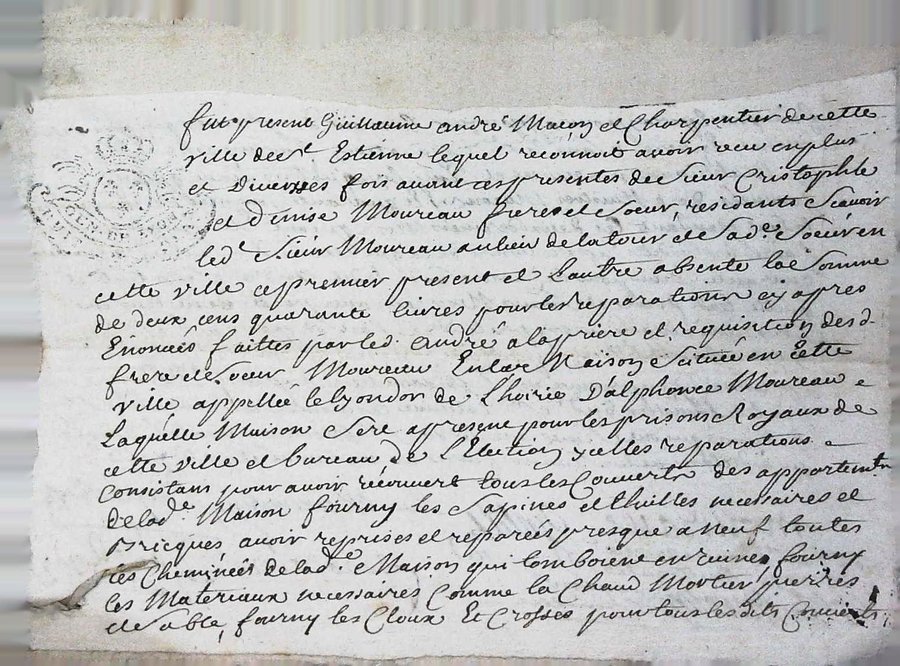 fut present Guillaume andré Maçon et Charpentier de cette
ville de St Estienne lequel reconnoit avoir receu en plus
et Diverses fois avant ces presentes de Sieur Cristophle
et denise Moureau freres et Soeur, residants Scavoir
led Sieur Moureau au lieu de la tour et Sade Soeur en
cette ville ce premier present et l'autre absente la Somme
de deux cens quarante livres pour les reparations cy apres
Enoncées faittes par led andré a la priere et requisition des d
frere et Soeur Moureau En la Maison Située en Cette
ville appellée le lyon dor de L'hoirie D'alphonce Moureau
Laquelle Maison Sere a presque pour les prisons Royaux de
cette ville et bureau de l'Election ycelles reparations
Consistans pour avoir recouvert tous les Couverts des appartemts
de lade Maison fourny les Sapines et thuilles necessaires et
Bricques avoir reprises et reparées presque a Neuf toutes
les Cheminées de lade Maison qui tomboient en ruine, fourny
les Materiaux necessaires Comme la Chaud Mortier pierres
et Sable, fourny les Cloux Et Crosses pour tous les dits Couverts